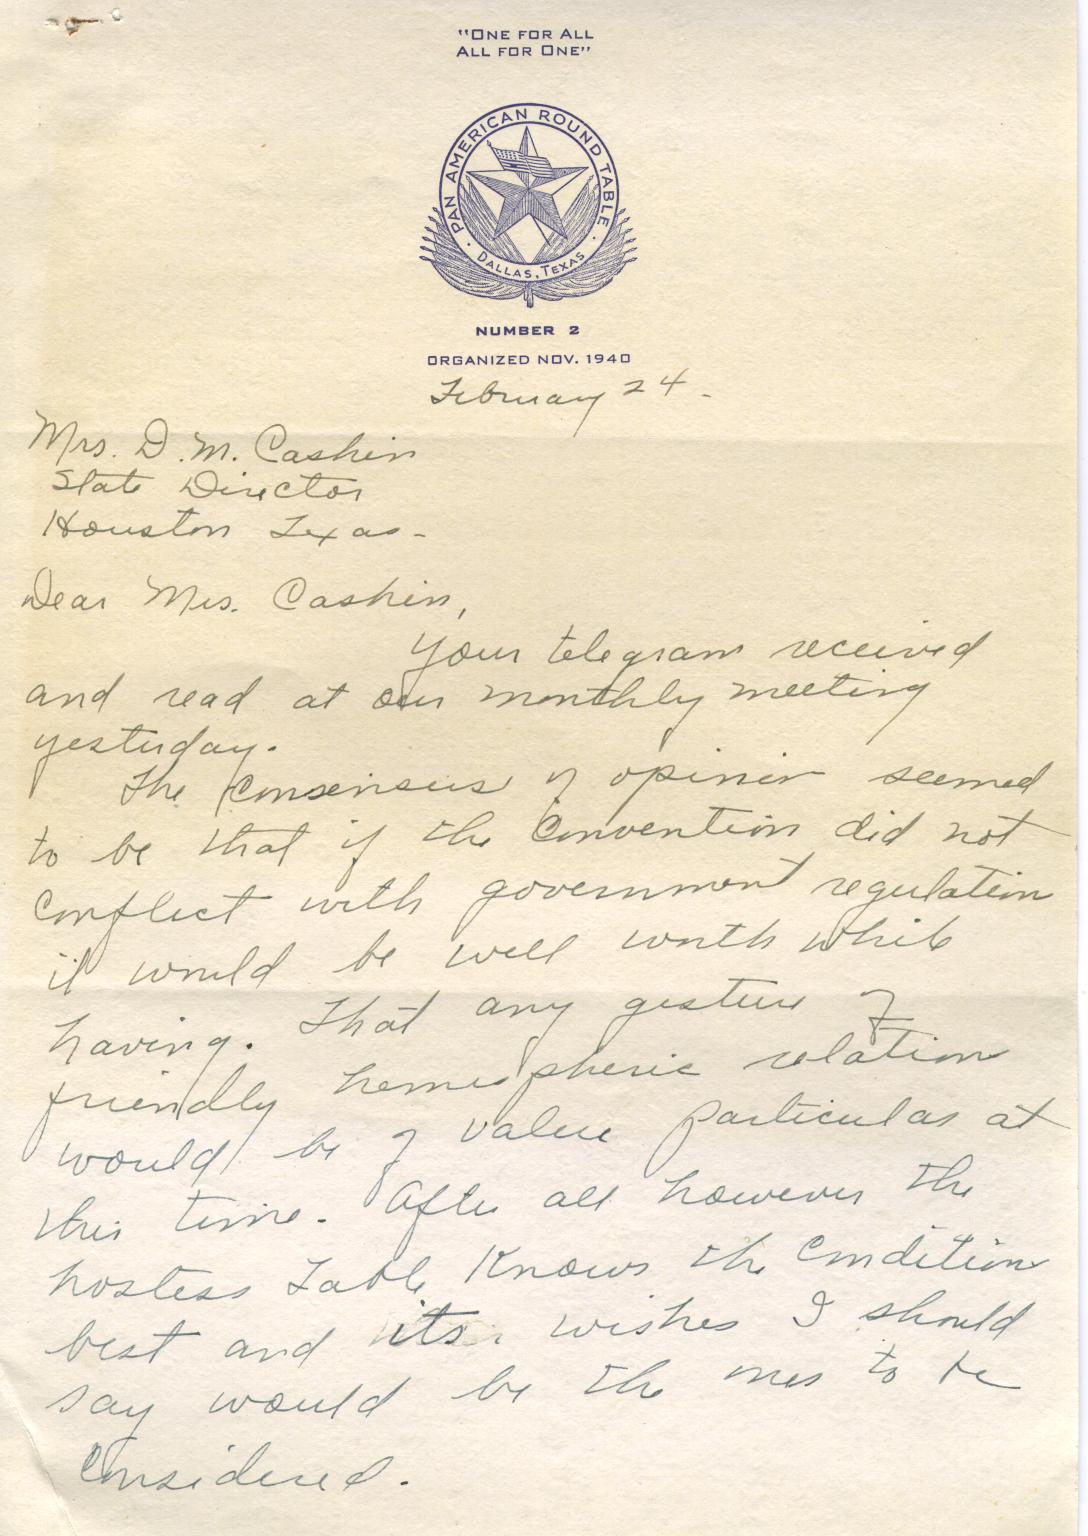 "ONE FOR ALL
ALL FOR ONE"
PAN AMERICAN ROUND TABLE
· DALLAS, TEXAS ·
NUMBER 2
ORGANIZED NOV. 1940
February 24.
Mrs. D. M. Cashin
State Director
Houston Texas.
Dear Mrs. Cashin,
Your telegram received
and read at our monthly meeting
yesterday.
The consensus of opinion seemed
to be that if the convention did not
conflict with government regulation
it would be well worth while
having. That any gesture of
friendly hemispheric relation
would be of value particular at
this time. After all however the
hostess Table knows the condition
best and its wishes I should
say would be the ones to be
considered.